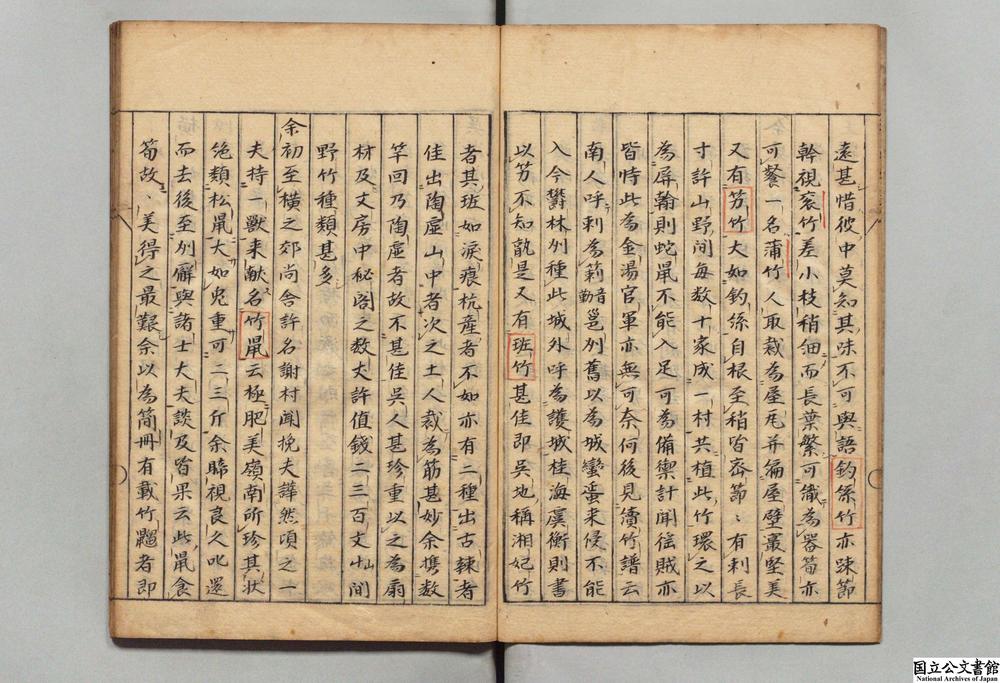 遠甚惜彼中莫知其味不可與語釣絲竹亦踈節
幹視衮竹差小枝稍細而長葉繁可織為器筍亦
可餐一名蒲竹人取裁為屋瓦并編屋壁叢堅美
又有竻竹大如釣絲自根至稍皆宻節〻有刺長
寸許山野間每数十家成一村共植此竹環之以
為屏翰則蛇鼠不能入足可為備禦計聞徭賊亦
皆時此為金湯官軍亦無可奈何後見續竹譜云
南人呼刺為竻音勒邕州舊以為城蠻蜑来侵不能
入今欝林州種此城外呼為護城桂海虞衡則書
以竻不知孰是又有班竹甚佳即吳地稱湘妃竹
者其班如淚痕杭産者不如亦有二種出古辣者
佳出陶虚山中者次之土人裁為筯甚妙余携数
竿回乃陶虚者故不甚佳吳人甚珍重以之為扇
材及文房中秘阁之数丈許值錢二三百文山間
野竹種類甚多
余初至横之郊尚舍許名謝村聞挽夫譁然頃之一
夫持一獸来献名竹鼠云極肥美嶺南所珍其状
絶類松鼠大如兎重可二三斤余睇視良久叱還
而去後至州廨與諸士大夫談及皆果云此鼠食
筍故〻美得之最艱余以為簡冊有載竹䶉者即
国立公文書館
National Archives of Japan